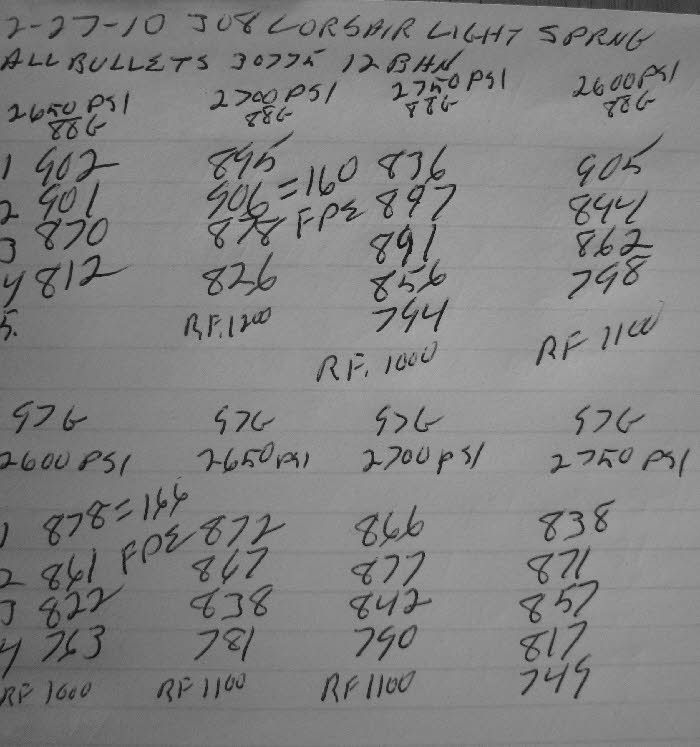 2-27-10 308 CORSAIR LIGHT SPRNG
ALL BULLETS 30775 12 BHN
2650 PSI 2700 PSI 2750 PSI 2600 PSI
88G 88G 88G 88G
1 902 895 836 905
2 901 906 = 160 897 894
3 870 878 FPE 891 862
4 812 826 856 798
5. RF. 1200 794
RF. 1000 RF 1100
97G 97G 97G 97G
2600 PSI 2650 PSI 2700 PSI 2750 PSI
1 878 = 166 872 866 838
2 861 FPE 867 877 871
3 822 838 842 857
4 763 781 790 817
RF 1000 RF 1100 RF 1100 749